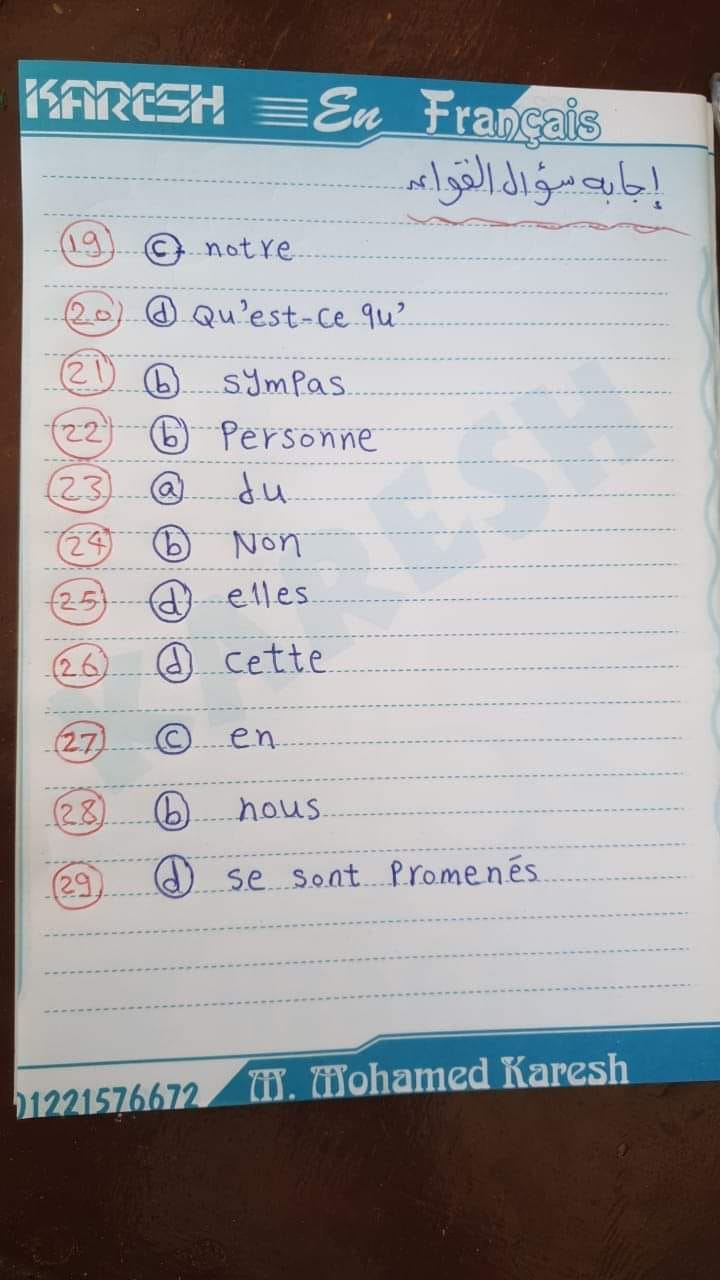 KARESH En Français
إجابه سؤال القواعد
19 c notre
20 d Qu'est-ce qu'
21 b sympas
22 b Personne
23 a du
24 b Non
25 d elles
26 d cette
27 c en
28 b nous
29 d se sont Promenés
KARESH
01221576672 M. Mohamed Karesh